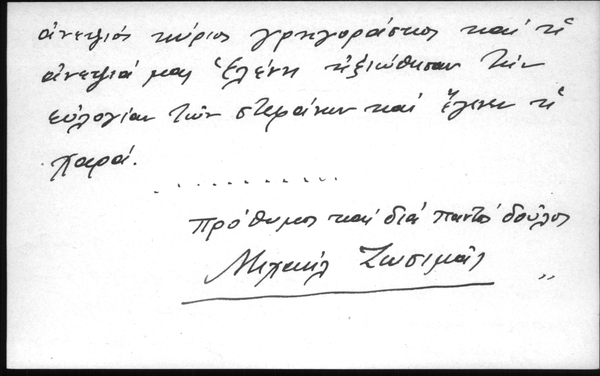 ἀνεψιός κύριος Γρηγοράσκος καί ἡ
ἀνεψιά μας Ἑλένη ἠξιώθησαν τήν
εὐλογίαν τῶν στεφάνων καί ἔγινεν ἡ
χαρά.
..............
πρόθυμος καί διά παντός δοῦλος
Μιχαήλ Ζωσιμᾶς
„